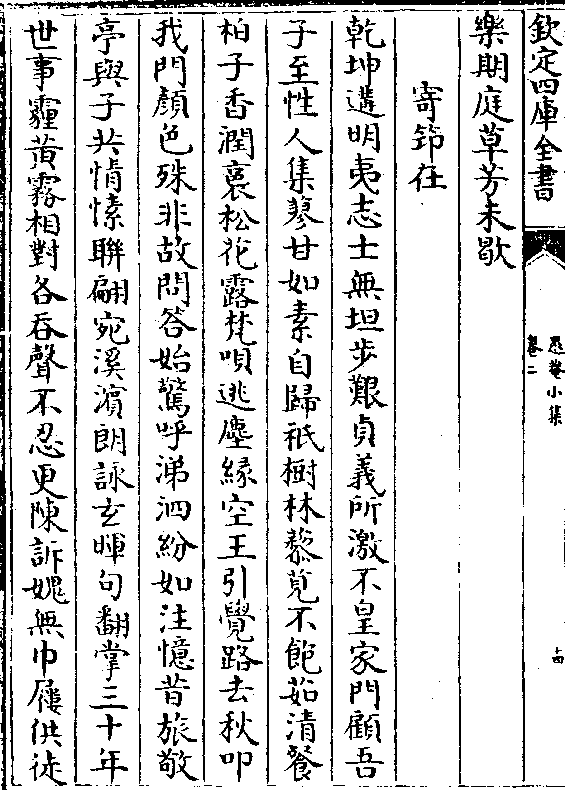 欽定四庫全書
愚菴小集
卷二
十四
樂期庭草芳未歇
寄節在
乾坤遘明夷志士無坦步艱貞義所激不皇家門顧吾
子至性人集蓼甘如素自歸祇樹林藜莧不飽茹清餐
柏子香潤裛松花露梵唄逃塵緣空王引覺路去秋叩
我門顏色殊非故問答始驚呼涕泗紛如注憶昔旅敬
亭與子共情愫聯翩宛溪濱朗詠玄暉句翻掌三十年
世事霾黃霧相對各吞聲不忍更陳訴媿無巾屨供徒